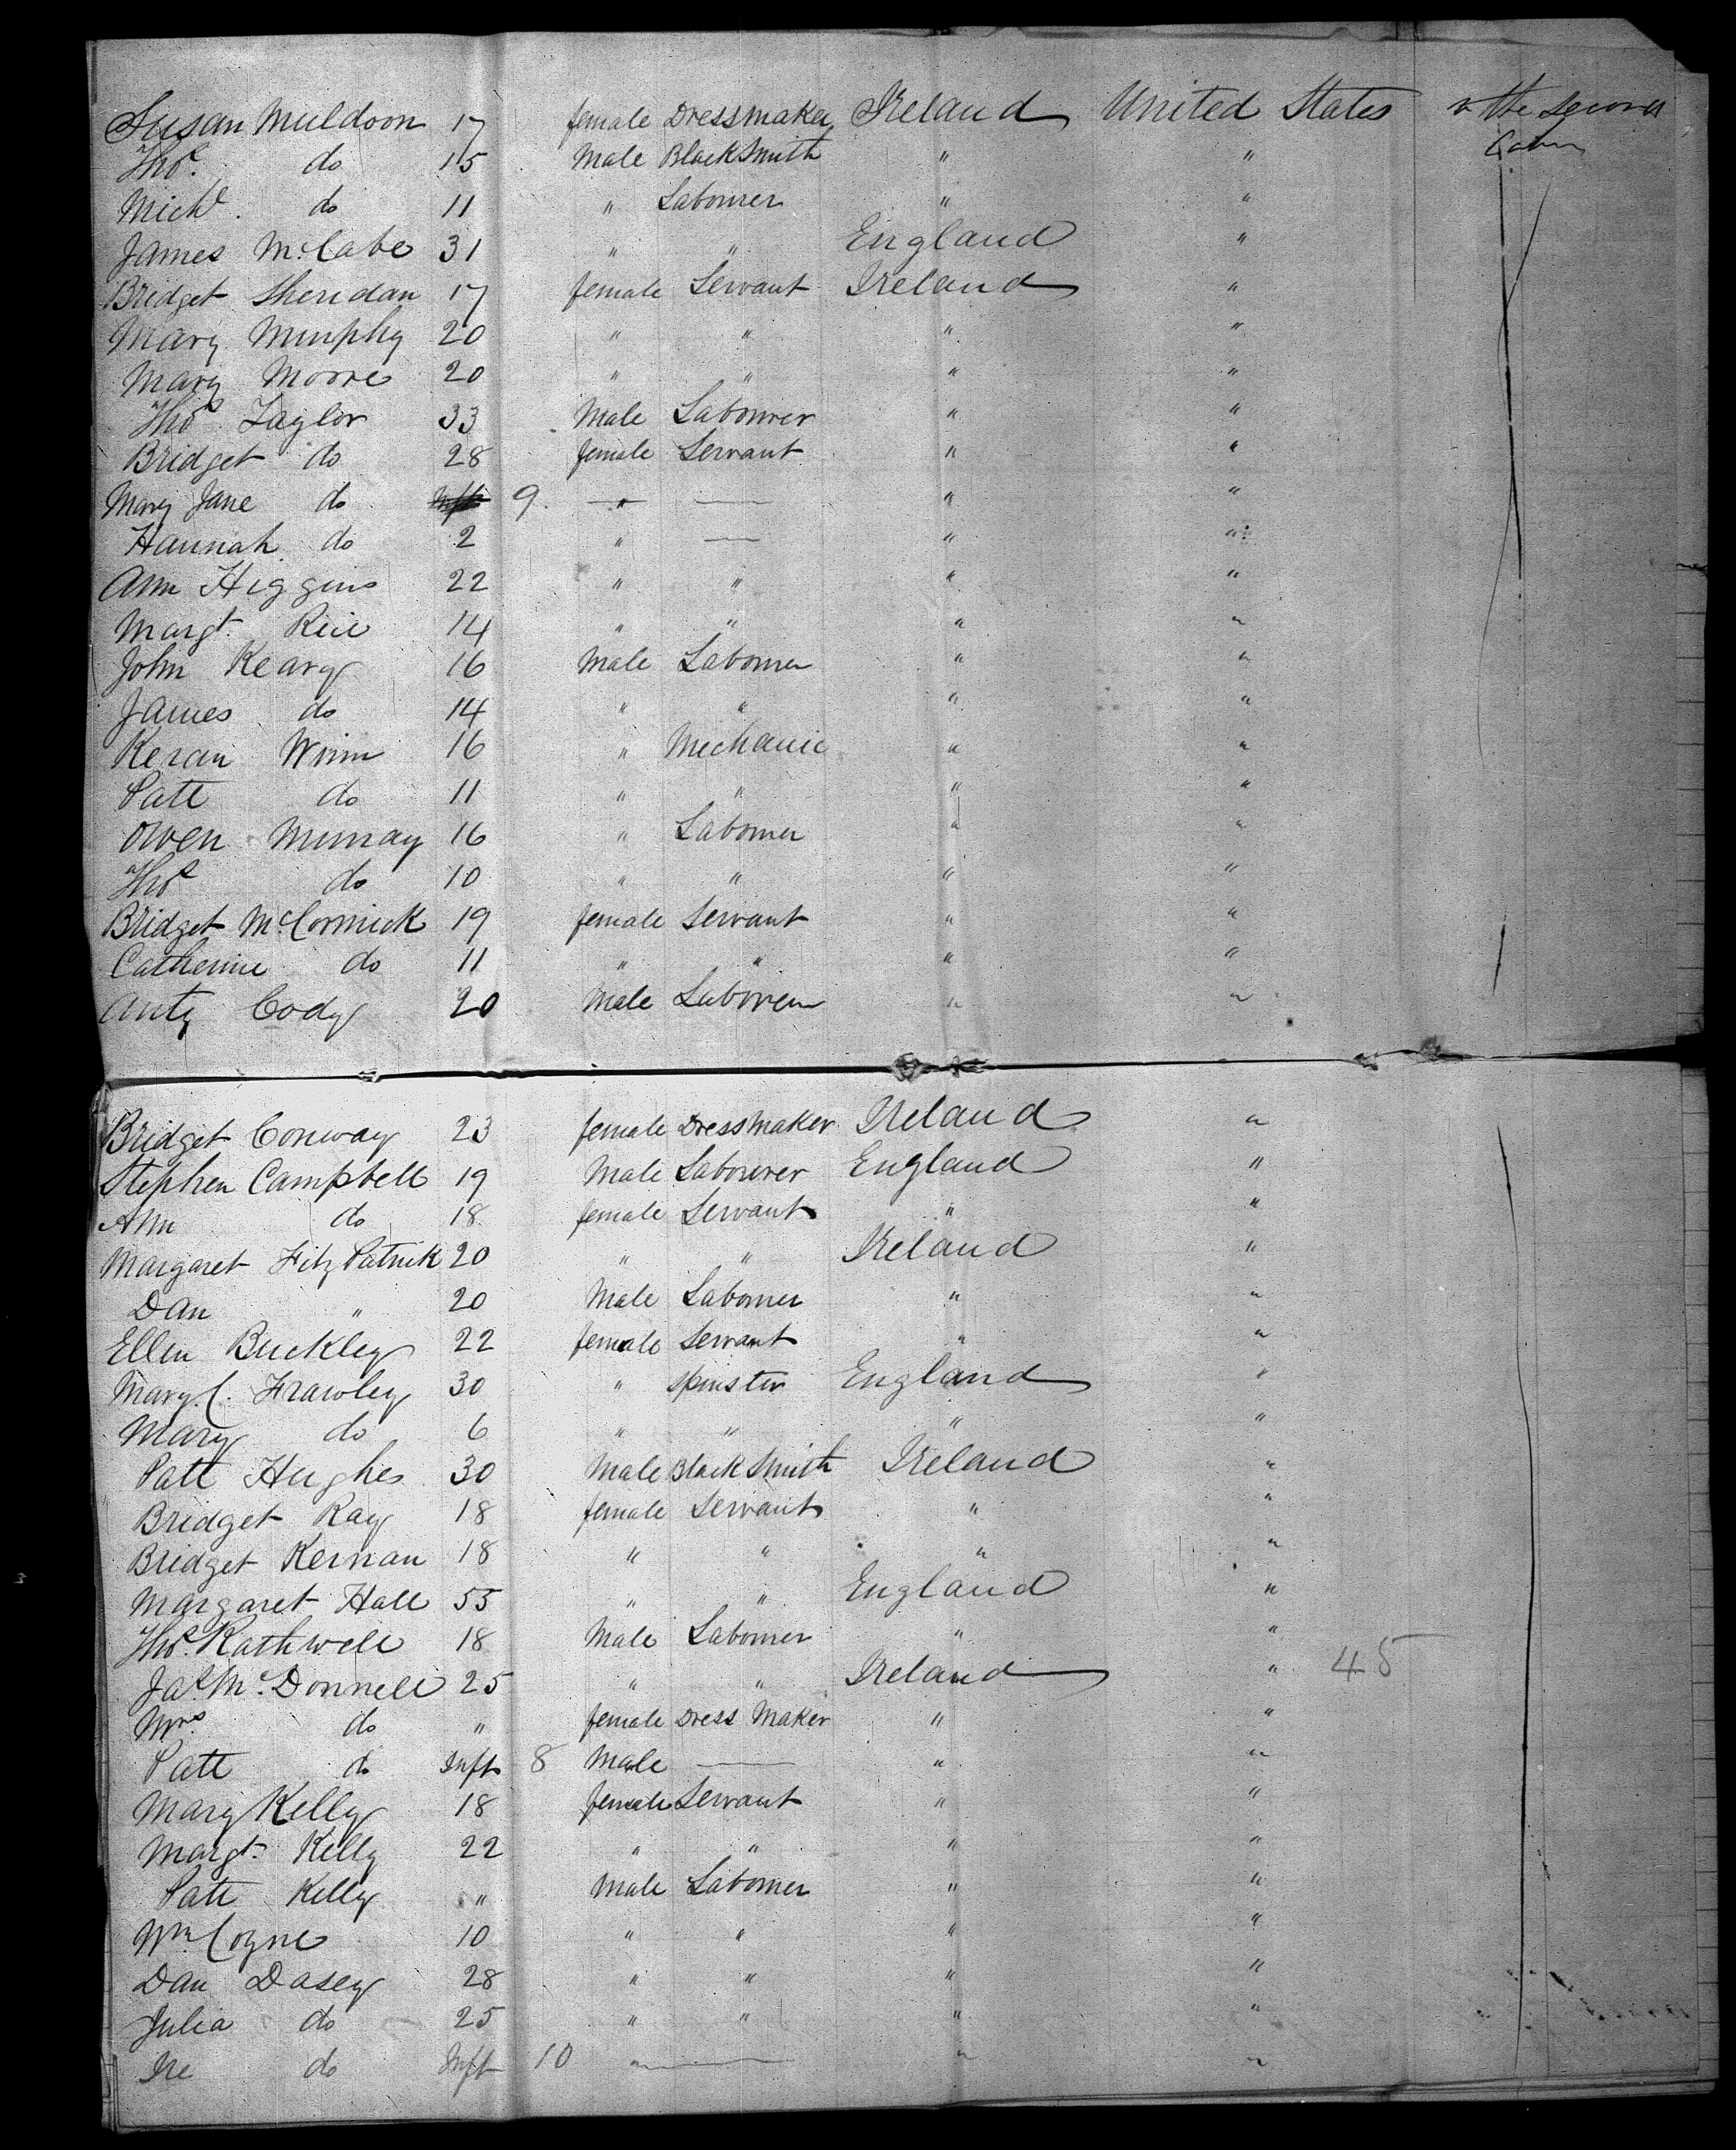 Susan Muldoon 17 female Dressmaker Ireland United States in the second
Thos. do 15 Male BlackSmith " " Cabin
Michl. do 11 " Labourer " "
James McCabe 31 " " England "
Bridget Sheridan 17 female Servant Ireland "
Mary Murphy 20 " " " "
Mary Moore 20 " " " "
Thos. Taylor 33 Male Labourer " "
Bridget do 28 female Servant " "
Mary Jane do Inft 9 " — " "
Hannah do 2 " — " "
Ann Higgins 22 " " " "
Margt. Rice 14 " " " "
John Keary 16 Male Labourer " "
James do 14 " " " "
Keran Winn 16 " Mechanic " "
Patt do 11 " " " "
Owen Murray 16 " Labourer " "
Thos do 10 " " " "
Bridget McCormick 19 female Servant " "
Catherine do 11 " " " "
Anty Cody 20 Male Labourer " "
Bridget Conway 23 female Dressmaker Ireland "
Stephen Campbell 19 Male Labourer England "
Ann do 18 female Servant " "
Margaret FitzPatrick 20 " " Ireland "
Dan " 20 Male Labourer " "
Ellen Buckley 22 female Servant " "
Mary C. Frawley 30 " Spinster England "
Mary do 6 " " " "
Patt Hughes 30 Male BlackSmith Ireland "
Bridget Kay 18 female Servant " "
Bridget Kernan 18 " " " "
Margaret Hall 55 " " England "
Thos. Rathwell 18 Male Labourer " "
Jas. McDonnell 25 " " Ireland " 45
Mrs. do " female Dress Maker " "
Patt do Inft 8 Male — " "
Mary Kelly 18 female Servant " "
Margt. Kelly 22 " " " "
Patt Kelly " Male Labourer " "
Wm Coyne 10 " " " "
Dan Dasey 28 " " " "
Julia do 25 " " " "
Ire do Inft 10 " — " "